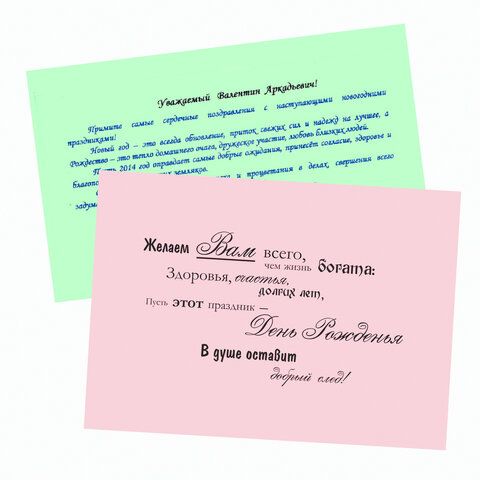 Уважаемый Валентин Аркадьевич!
Примите самые сердечные поздравления с наступающими новогодними
праздниками!
Новый год – это всегда обновление, приток свежих сил и надежд на лучшее, а
Рождество – это тепло домашнего очага, дружеское участие, любовь близких людей.
Пусть 2014 год оправдает самые добрые ожидания, принесёт согласие, здоровье и
земляков.
и процветания в делах, свершения всего
Желаем Вам всего,
чем жизнь богата:
Здоровья, счастья,
долгих лет,
Пусть этот праздник –
День Рожденья
В душе оставит
добрый след!